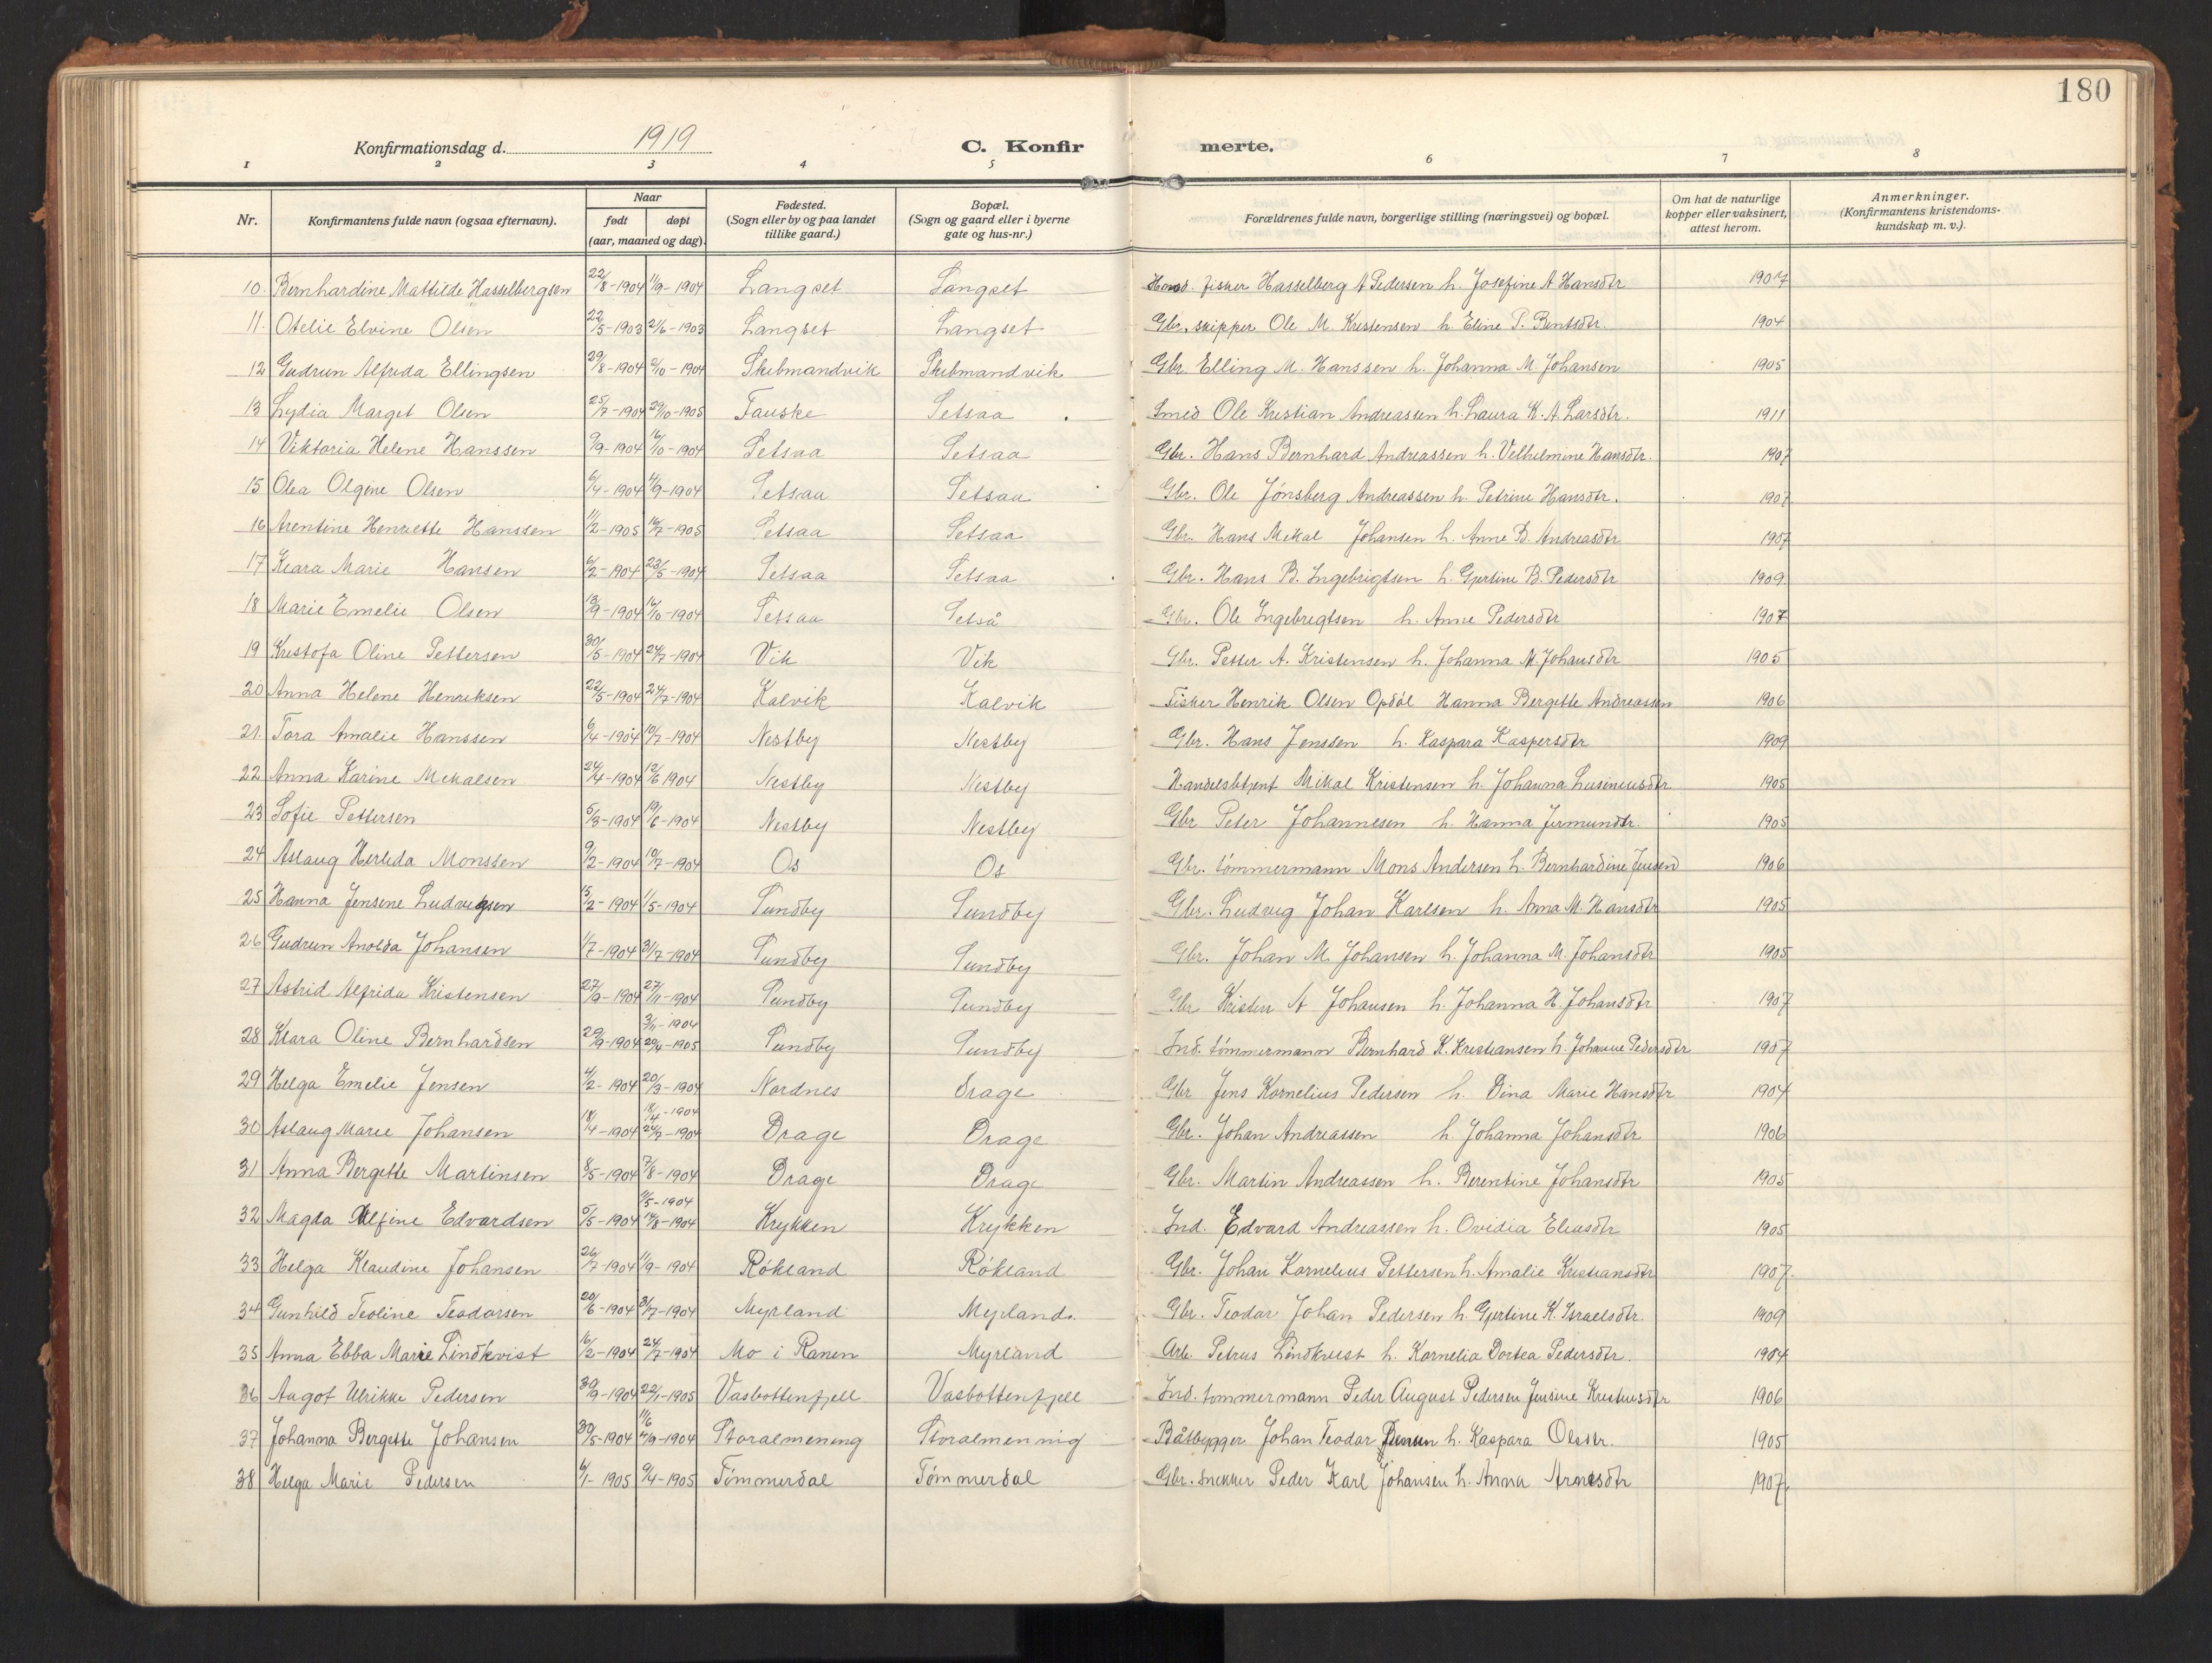 180
Konfirmationsdag d. 1919 C. Konfir merte.
1 2 3 4 5 6 7 8
Nr. Konfirmantens fulde navn (ogsaa efternavn). Naar født døpt (aar, maaned og dag). Fødested. (Sogn eller by og paa landet tillike gaard.) Bopæl. (Sogn og gaard eller i byerne gate og hus-nr.) Forældrenes fulde navn, borgerlige stilling (næringsvei) og bopæl. Om hat de naturlige kopper eller vaksinert, attest herom. Anmerkninger. (Konfirmantens kristendoms-kundskap m. v.).
10. Bernhardine Mattilde Hasselbergsen 22/8-1904 11/9-1904 Langset Langset fisker Hasselberg A Pedersen h. Josefine A Hansdtr 1907
11. Otelie Elvine Olsen 22/5-1903 21/6-1903 Langset Langset Gbr. skipper Ole M. Kristensen h. Eline P. Bentsdtr. 1904
12 Gudrun Alfrida Ellingsen 29/8-1904 9/10-1904 Skibmandvik Skibmandvik Gbr. Elling M. Hanssen h. Johanna M. Johansen 1905
13 Lydia Marget Olsen 25/7-1904 29/10-1905 Fauske Setsaa Smed Ole Kristian Andreassen h. Laura K. A. Larsdtr. 1911
14 Viktoria Helene Hanssen 9/9-1904 16/10-1904 Setsaa Setsaa Gbr. Hans Bernhard Andreassen h. Velhelmine Hansdtr. 1907
15 Olea Olgine Olsen 6/4-1904 4/9-1904 Setsaa Setsaa Gbr. Ole Jønsberg Andreassen h. Petrine Hansdtr. 1907
16 Arentine Henriette Hanssen 11/2-1905 16/7-1905 Setsaa Setsaa Gbr. Hans Mikal Johansen h. Anne B. Andreasdtr 1907
17 Klara Marie Hansen 6/2-1904 23/5-1904 Setsaa Setsaa Gbr. Hans B. Ingebrigtsen h. Gjertine B. Pedersdtr 1909
18 Marie Emelie Olsen 13/9-1904 16/10-1904 Setsaa Setså Gbr. Ole Ingebregtsen h. Anne Pedersdtr 1907
19 Kristofa Oline Pettersen 30/5-1904 24/7-1904 Vik Vik Gbr. Petter A. Kristensen h. Johanna N. Johansdtr 1905
20 Anna Helene Henriksen 22/5-1904 24/7-1904 Kalvik Kalvik Fisker Henrik Olsen Opdøl Hanna Bergette Andreassen 1906
21. Tora Amalie Hanssen 6/4-1904 10/7-1904 Nestby Nestby Gbr. Hans Jenssen h. Kaspara Kaspersdtr 1909
22 Anna Karine Mikalsen 24/4-1904 12/6 1904 Nestby Nestby Handelsbetjent Mikal Kristensen h. Johanna 1905
23 Sofie Pettersen 5/3-1904 19/6-1904 Nestby Nestby Gbr Peter Johannesen h. Hanna Jermundtr. 1905
24 Aslaug Herlida Monssen 9/2-1904 10/7-1904 Os Os Gbr. tømmermann Mons Andersen h. Bernhardine Jensen 1906
25 Hanna Jensine Ludvigsen 15/2-1904 1/5-1904 Sundby Sundby Gbr. Ludvig Johan Karlsen h. Anna M. Hansdtr 1905
26 Gudrun Anolda Johansen 1/7-1904 31/7-1904 Sundby Sundby Gbr. Johan M. Johansen h. Johanna M. Johansdtr 1905
27 Astrid Alfrida Kristensen 27/9-1904 27/11-1904 Sundby Sundby Gbr Kristen A Johansen h. Johanna H. Johansdtr 1907
28 Klara Oline Bernhardsen 29/9-1904 3/11-1904 20/4-1905 Sundby Sundby Ind. tømmermann Bernhard K. Kristiansen h. Johanne Pedersdtr 1907
29 Helga Emelie Jensen 4/2-1904 20/3-1904 Nordnes Drage Gbr Jens Kornelius Pedersen h. Dina Marie Hansdtr 1904
30 Aslaug Marie Johansen 18/4-1904 18/4-1904 24/7-1904 Drage Drage Gbr. Johan Andreassen h. Johanna Johansdtr 1906
31 Anna Bergette Martinsen 8/5-1904 7/8-1904 Drage Drage Gbr. Martin Andreassen h. Berentine Johansdtr 1905
32 Magda Alfine Edvardsen 5/5-1904 11/5-1904 14/8-1904 Krykken Krykken Ind. Edvard Andreassen h. Ovidia Eliasdtr 1905
33 Helga Klaudine Johansen 26/7-1904 11/9-1904 Røkland Røkland Gbr. Johan Kornelius Pettersen h. Amalie Kristiansdtr 1907.
34 Gunhild Teoline Teodorsen 20/6-1904 31/7-1904 Myrland Myrland. Gbr. Teodor Johan Pedersen h. Gjertine K. Israelsdtr. 1909
35 Anna Ebba Marie Lindkvist 16/2-1904 24/7-1904 Mo i Ranen Myrland Arb. Petrus Lindkvist h. Kornelia Dortea Pedersdtr. 1904
36 Aagot Ulrikke Pedersen 30/9-1904 22/1-1905 Vasbottenfjell Vasbottenfjell Ind. tømmermann Peder August Pedersen Jensine Kristensdtr 1906
37 Johanna Bergette Johansen 30/5-1904 11/6 4/9-1904 Storalmening Storalmennig Båtbygger Johan Teodor Jensen h. Kaspara Olsdtr. 1905
38 Helga Marie Pedersen 6/1-1905 9/4-1905 Tømmerdal Tømmerdal Gbr. snekker Peder Karl Johansen h. Anna Arnesdtr 1907.